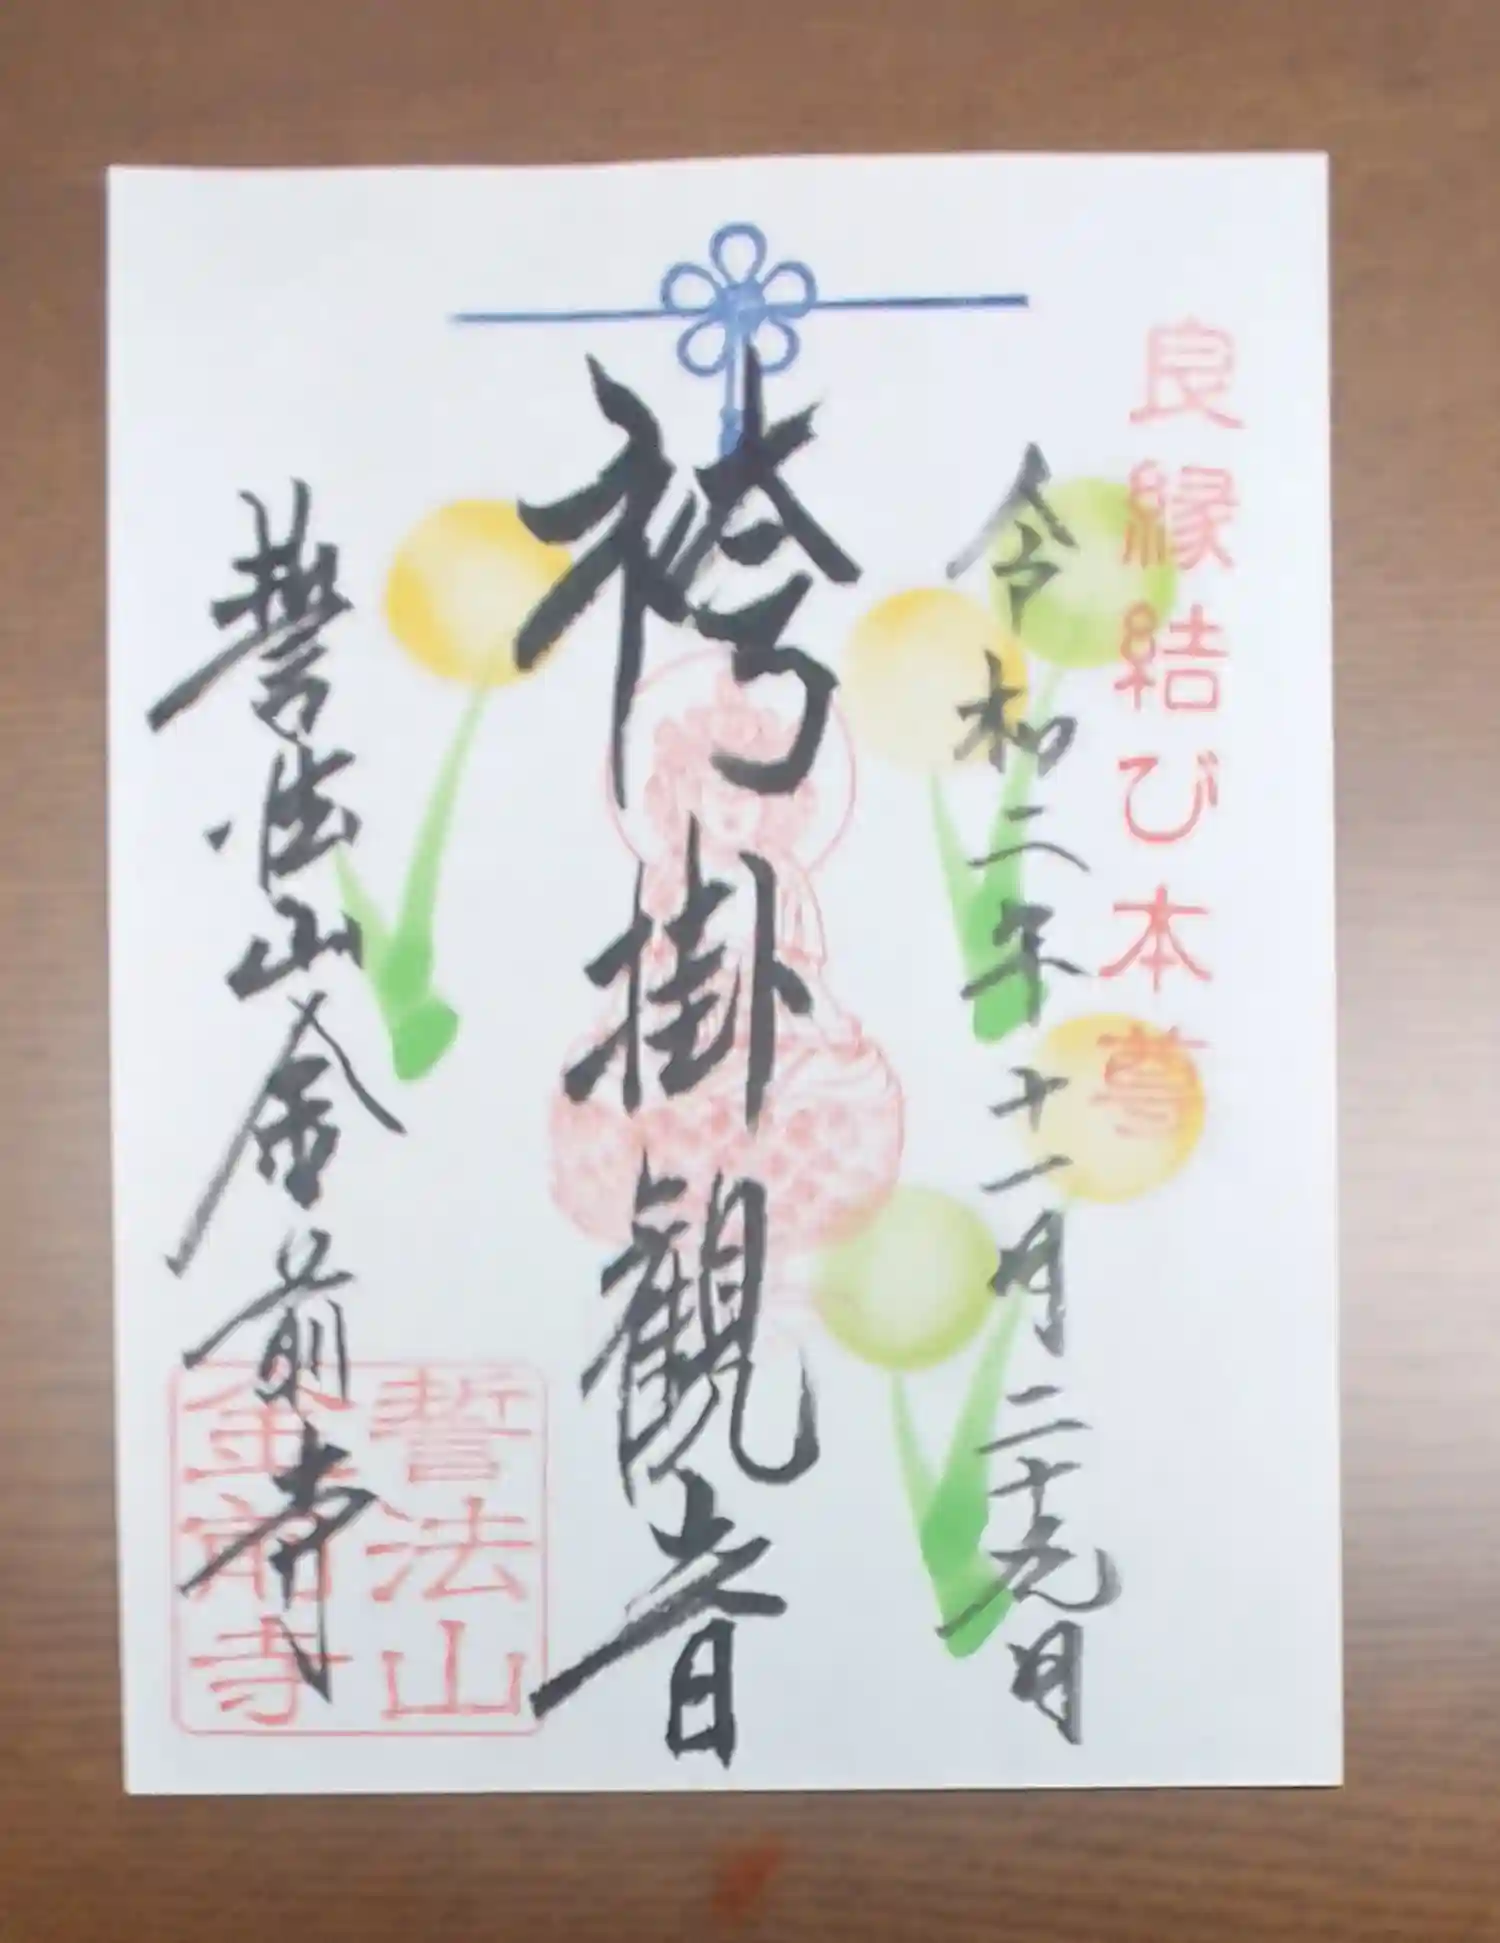 良縁結び本尊
令和二年十一月二十九日
袴掛観音
誓法山金前寺
誓法山
金前寺